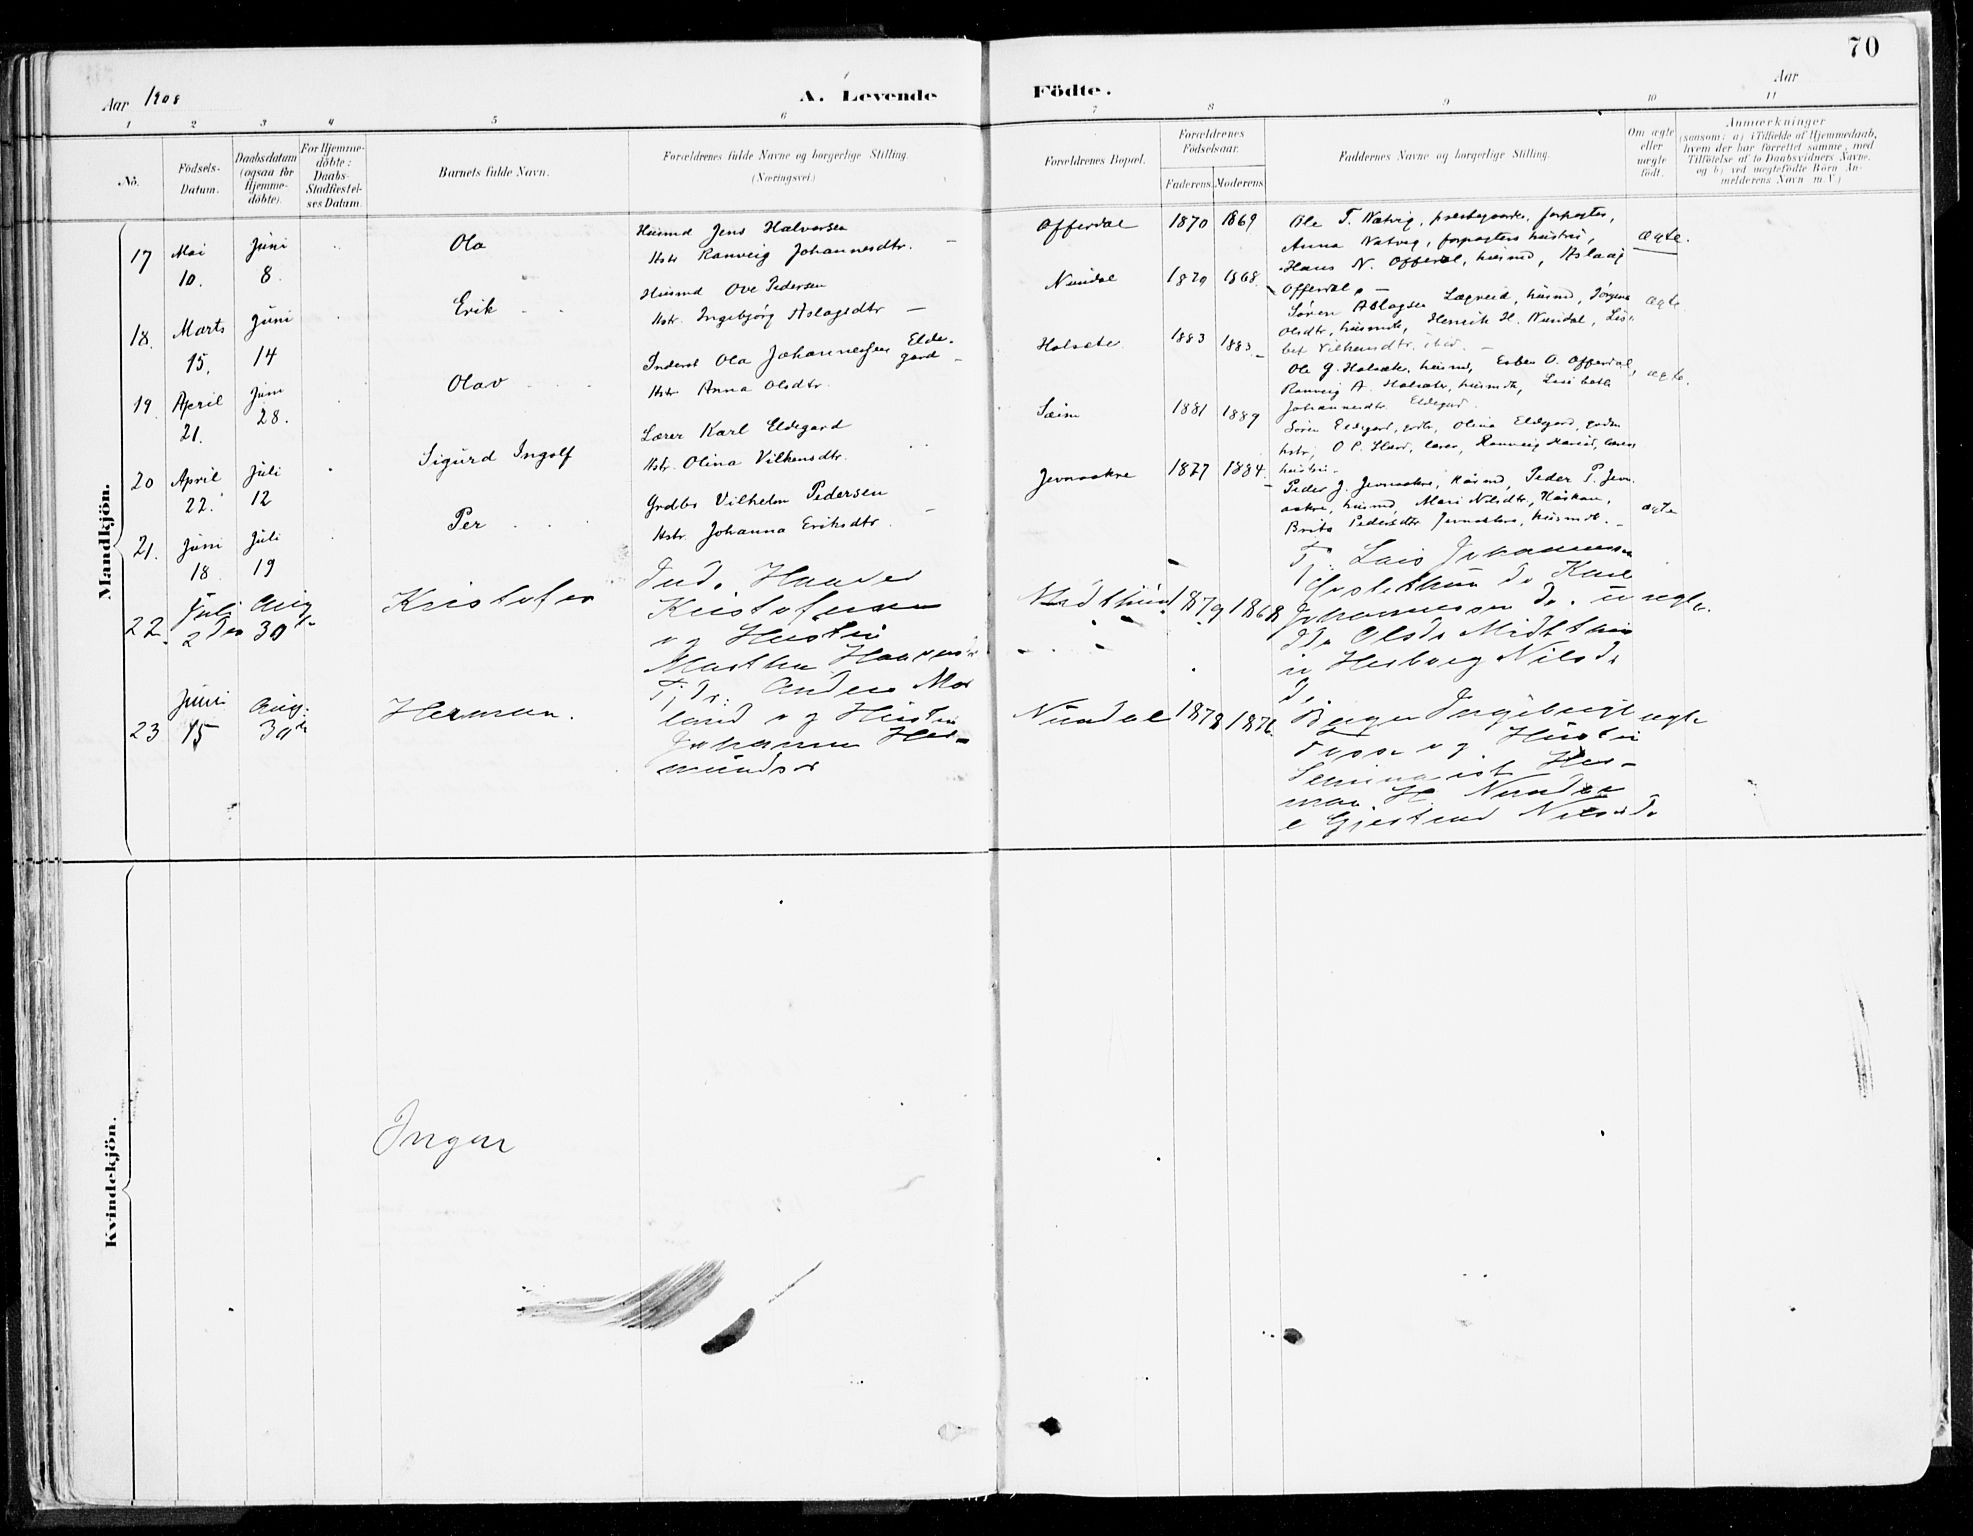 70
Aar 1908
A. Levende Födte.
Aar
1 2 3 4 5 6 7 8 9 10 11
No.
Födsels-Datum.
Daabsdatum (ogsaa for Hjemme-döbte).
For Hjemme-döbte: Daabs-Stadfæstel-ses Datum.
Barnets fulde Navn.
Forældrenes fulde Navne og borgerlige Stilling. (Næringsvei.)
Forældrenes Bopæl.
Forældrenes Födselsaar.
Faderens. Moderens.
Faddernes Navne og borgerlige Stilling.
Om ægte eller uægte födt.
Anmærkninger
(saasom: a) i Tilfælde af Hjemmedaab,
hvem der har forrettet samme, med
Tilföielse af to Daabsvidners Navne,
og b) ved uægtefödte Börn An-
melderens Navn m.V.)
Mandkjön.
17 Mai 10. Juni 8. Ola
Husmd Jens Halvorsen
Hstr Ranveig Johannesdtr. —
Offerdal 1870 1869
Ole T. Natvig, prestegaards forpagter,
Anna Natvig, forpagters hustru,
Hans N. Offerdal, husmd, Aslaug
Offerdal, —
ægte.
18. Marts 15. Juni 14 Erik
Husmd Ove Pedersen
Hstr. Ingebjørg Aslagsdtr —
Nundal 1870 1868
Søren Aslagsen Lægreid, husmd, Jørgina
Olsdtr, husmds, Henrik H. Nundal, Lis-
bet Vilhemsdtr. ibid. —
ægte
19 April 21. Juni 28. Olav
Inderst Ola Johannessen Elde-
gard —
Hstr Anna Olsdtr.
Holsæte 1883 1883
Ole G. Holsæte, husmd, Esben O. Offerdal,
Ranveig A. Holsæte, husmdk, Lisbeth
Johannesdtr. Eldegard.
ægte.
20 April 22. Juli 12 Sigurd Ingolf
Lærer Karl Eldegard
Hstr. Olina Vilhemsdtr.
Seim 1881 1889
Søren Eldegard, grdbr, Olina Eldegard, grdbr
hstr, O P. , lærer, Ranveig , lærers
hustru.
21. Juni 18 Juli 19 Per
Grdbr Vilhelm Pedersen
Hstr. Johanna Eriksdtr. —
Jevnaakre 1877 1884.
Peder J. Jevnaakre, husmd, Peder P. Jevn-
aakre, husmd, Mari Nilsdtr, ,
Brita Pedersdtr Jevnaakre, husmdk. —
ægte
22. Juli 2den Aug 30te Kristofer
Ind. Haaver
Kristofersen
og Hustru
Martha
Midthun 1879 1868
Tj: Lars Johannessen
 Karl
Johannessen
 Olsdr Midthun
 Herborg Nilsdr
ægte
23 Juni 15 Aug: 30te Herman.
Tjdr: Anders Mo
land og Hustru
Johanna Her-
mundsdr
Nundal 1878 1876.
Birger Ingebrigt
 og Hustru
Seminarist Her-
man H. Nundal
 Gjertrud Nilsdr
ægte
Kvindekjön.
Inger